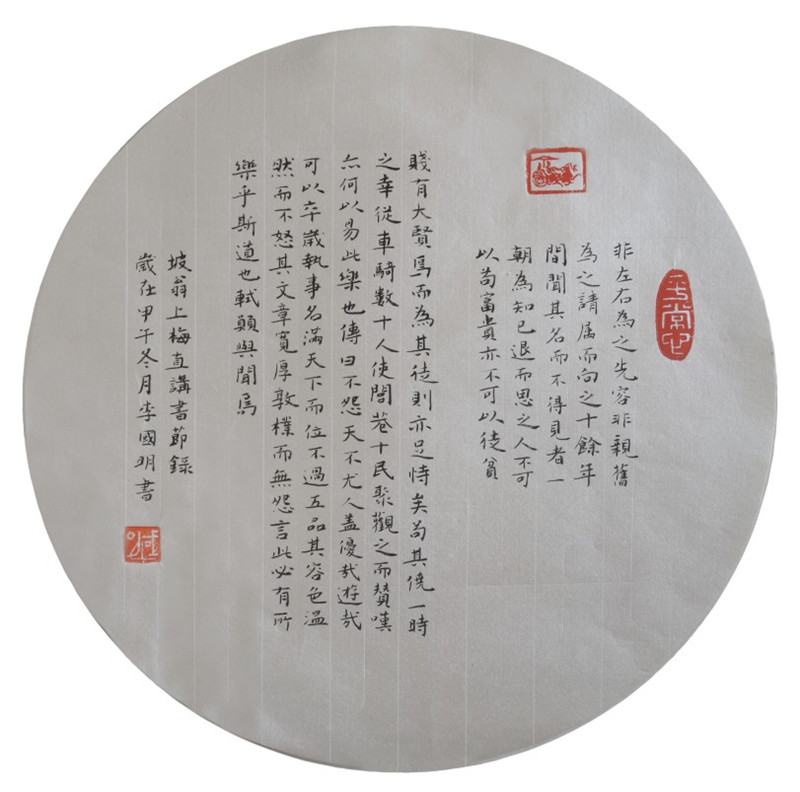 平常心
非左右為之先容非親舊
為之請属而向之十餘年
間聞其名而不得見者一
朝為知己退而思之人不可
以苟富貴亦不可以徒貧
賤有大賢焉而為其徒則亦足恃矣苟其僥一時
之幸從車騎数十人使閭巷十民聚觀之而賛嘆
亦何以易此樂也傳曰不怨天不尤人盖優哉遊哉
可以卒歲執事名滿天下而位不過五品其容色溫
然而不怒其文章寬厚敦樸而無怨言此必有所
樂乎斯道也軾願與聞焉
坡翁上梅直講書節錄
歲在甲午冬月李國明書